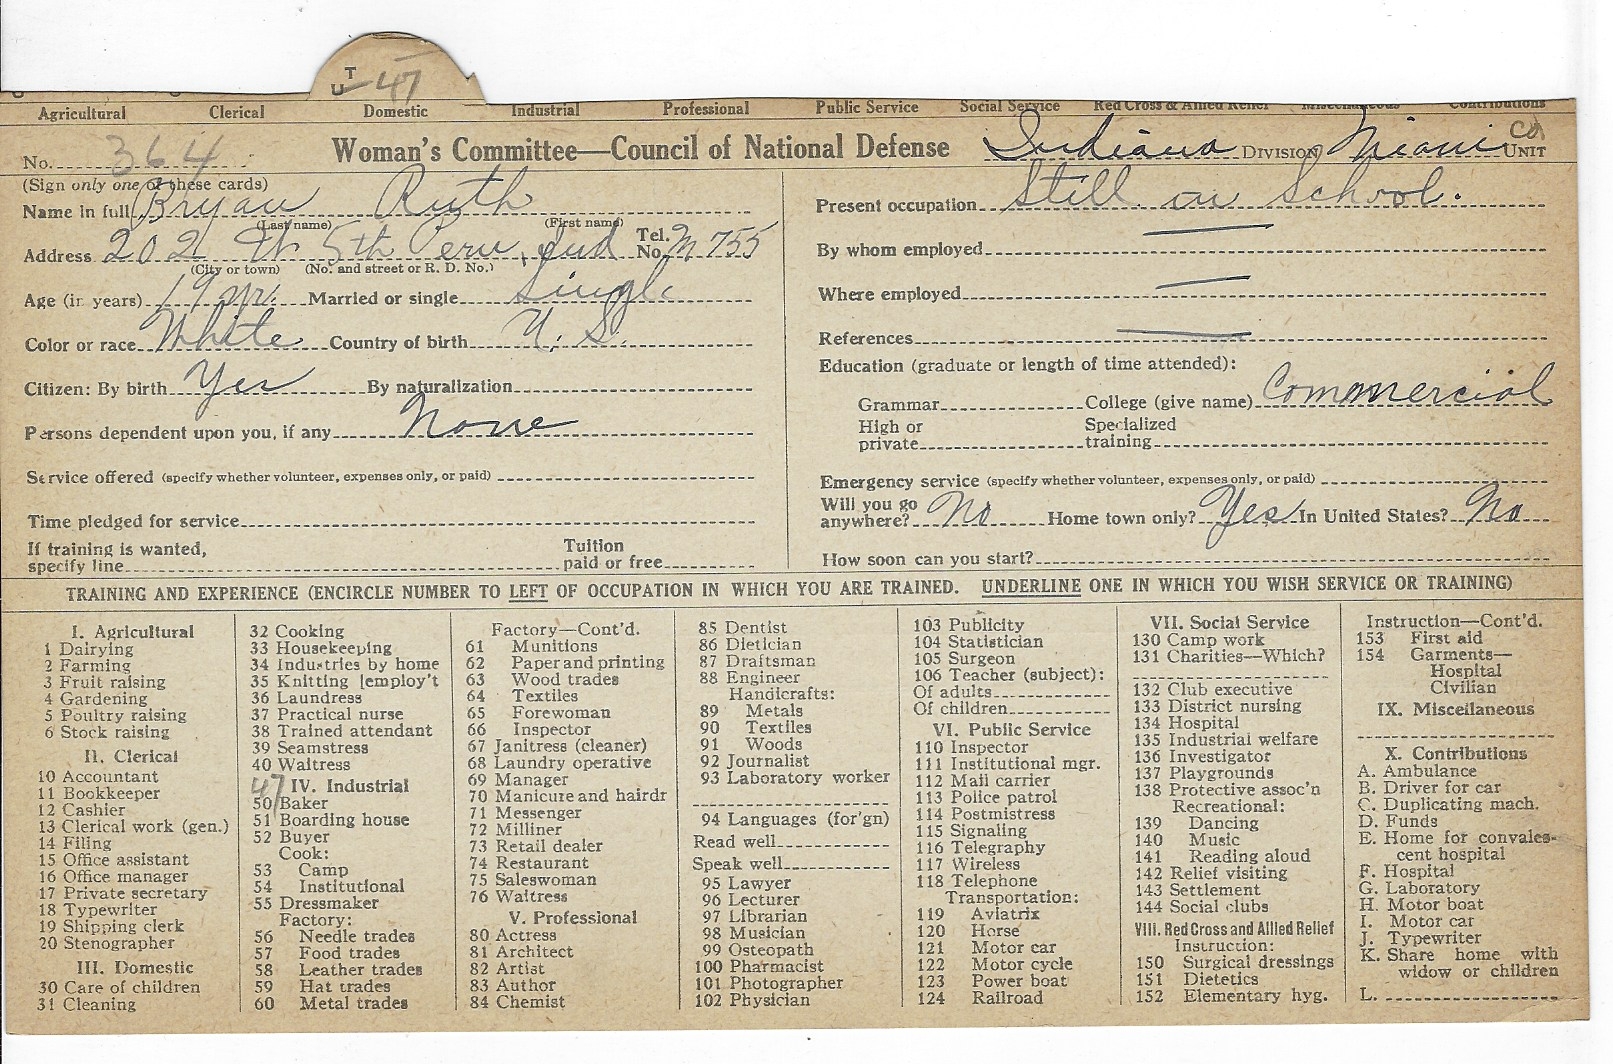 T
U 47
Agricultural Clerical Domestic Industrial Professional Public Service Social Service Red Cross & Allied Relief Miscellaneous Contributions
No. 364 Woman's Committee—Council of National Defense Indiana DIVISION Miami Co UNIT
(Sign only one of these cards)
Name in full Bryan Ruth
(Last name) (First name)
Address 202 W 5th Peru, Ind Tel. No. M 755
(City or town) (No. and street or R. D. No.)
Age (in years) 19 yr. Married or single Single
Color or race White Country of birth U. S.
Citizen: By birth Yes By naturalization
Persons dependent upon you, if any None
Service offered (specify whether volunteer, expenses only, or paid)
Time pledged for service
If training is wanted, specify line Tuition paid or free
Present occupation Still in School.
By whom employed —
Where employed —
References —
Education (graduate or length of time attended):
Grammar College (give name) Commercial
High or private Specialized training
Emergency service (specify whether volunteer, expenses only, or paid)
Will you go anywhere? No Home town only? Yes In United States? No
How soon can you start?
TRAINING AND EXPERIENCE (ENCIRCLE NUMBER TO LEFT OF OCCUPATION IN WHICH YOU ARE TRAINED. UNDERLINE ONE IN WHICH YOU WISH SERVICE OR TRAINING)
I. Agricultural
1 Dairying
2 Farming
3 Fruit raising
4 Gardening
5 Poultry raising
6 Stock raising
II. Clerical
10 Accountant
11 Bookkeeper
12 Cashier
13 Clerical work (gen.)
14 Filing
15 Office assistant
16 Office manager
17 Private secretary
18 Typewriter
19 Shipping clerk
20 Stenographer
III. Domestic
30 Care of children
31 Cleaning
32 Cooking
33 Housekeeping
34 Industries by home
35 Knitting [employ't
36 Laundress
37 Practical nurse
38 Trained attendant
39 Seamstress
40 Waitress
47 IV. Industrial
50 Baker
51 Boarding house
52 Buyer
Cook:
53 Camp
54 Institutional
55 Dressmaker
Factory:
56 Needle trades
57 Food trades
58 Leather trades
59 Hat trades
60 Metal trades
Factory—Cont'd.
61 Munitions
62 Paper and printing
63 Wood trades
64 Textiles
65 Forewoman
66 Inspector
67 Janitress (cleaner)
68 Laundry operative
69 Manager
70 Manicure and hairdr
71 Messenger
72 Milliner
73 Retail dealer
74 Restaurant
75 Saleswoman
76 Waitress
V. Professional
80 Actress
81 Architect
82 Artist
83 Author
84 Chemist
85 Dentist
86 Dietician
87 Draftsman
88 Engineer
Handicrafts:
89 Metals
90 Textiles
91 Woods
92 Journalist
93 Laboratory worker
94 Languages (for'gn)
Read well
Speak well
95 Lawyer
96 Lecturer
97 Librarian
98 Musician
99 Osteopath
100 Pharmacist
101 Photographer
102 Physician
103 Publicity
104 Statistician
105 Surgeon
106 Teacher (subject):
Of adults
Of children
VI. Public Service
110 Inspector
111 Institutional mgr.
112 Mail carrier
113 Police patrol
114 Postmistress
115 Signaling
116 Telegraphy
117 Wireless
118 Telephone
Transportation:
119 Aviatrix
120 Horse
121 Motor car
122 Motor cycle
123 Power boat
124 Railroad
VII. Social Service
130 Camp work
131 Charities—Which?
132 Club executive
133 District nursing
134 Hospital
135 Industrial welfare
136 Investigator
137 Playgrounds
138 Protective assoc'n
Recreational:
139 Dancing
140 Music
141 Reading aloud
142 Relief visiting
143 Settlement
144 Social clubs
VIII. Red Cross and Allied Relief
Instruction:
150 Surgical dressings
151 Dietetics
152 Elementary hyg.
Instruction—Cont'd.
153 First aid
154 Garments—
Hospital
Civilian
IX. Miscellaneous
X. Contributions
A. Ambulance
B. Driver for car
C. Duplicating mach.
D. Funds
E. Home for convales-
cent hospital
F. Hospital
G. Laboratory
H. Motor boat
I. Motor car
J. Typewriter
K. Share home with
widow or children
L.